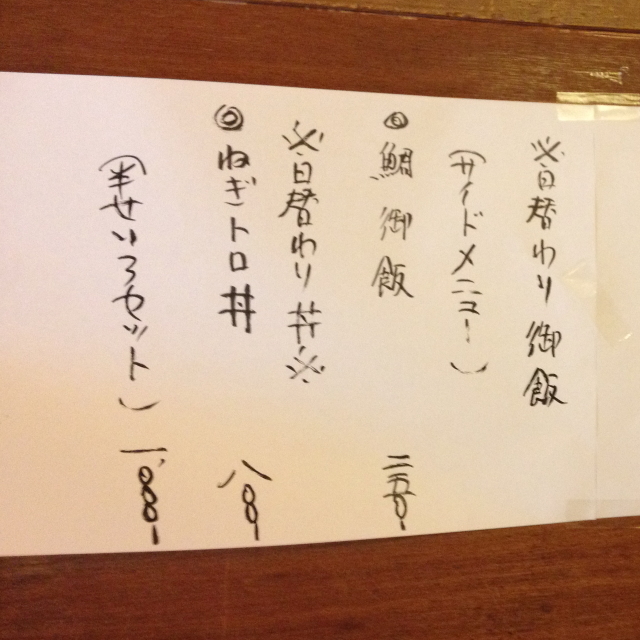 ※日替わり御飯
(サイドメニュー)
◎鯛御飯 三五〇-
※日替わり丼※
◎ねぎトロ丼 八〇〇-
(半せいろセット) 一、〇〇〇-